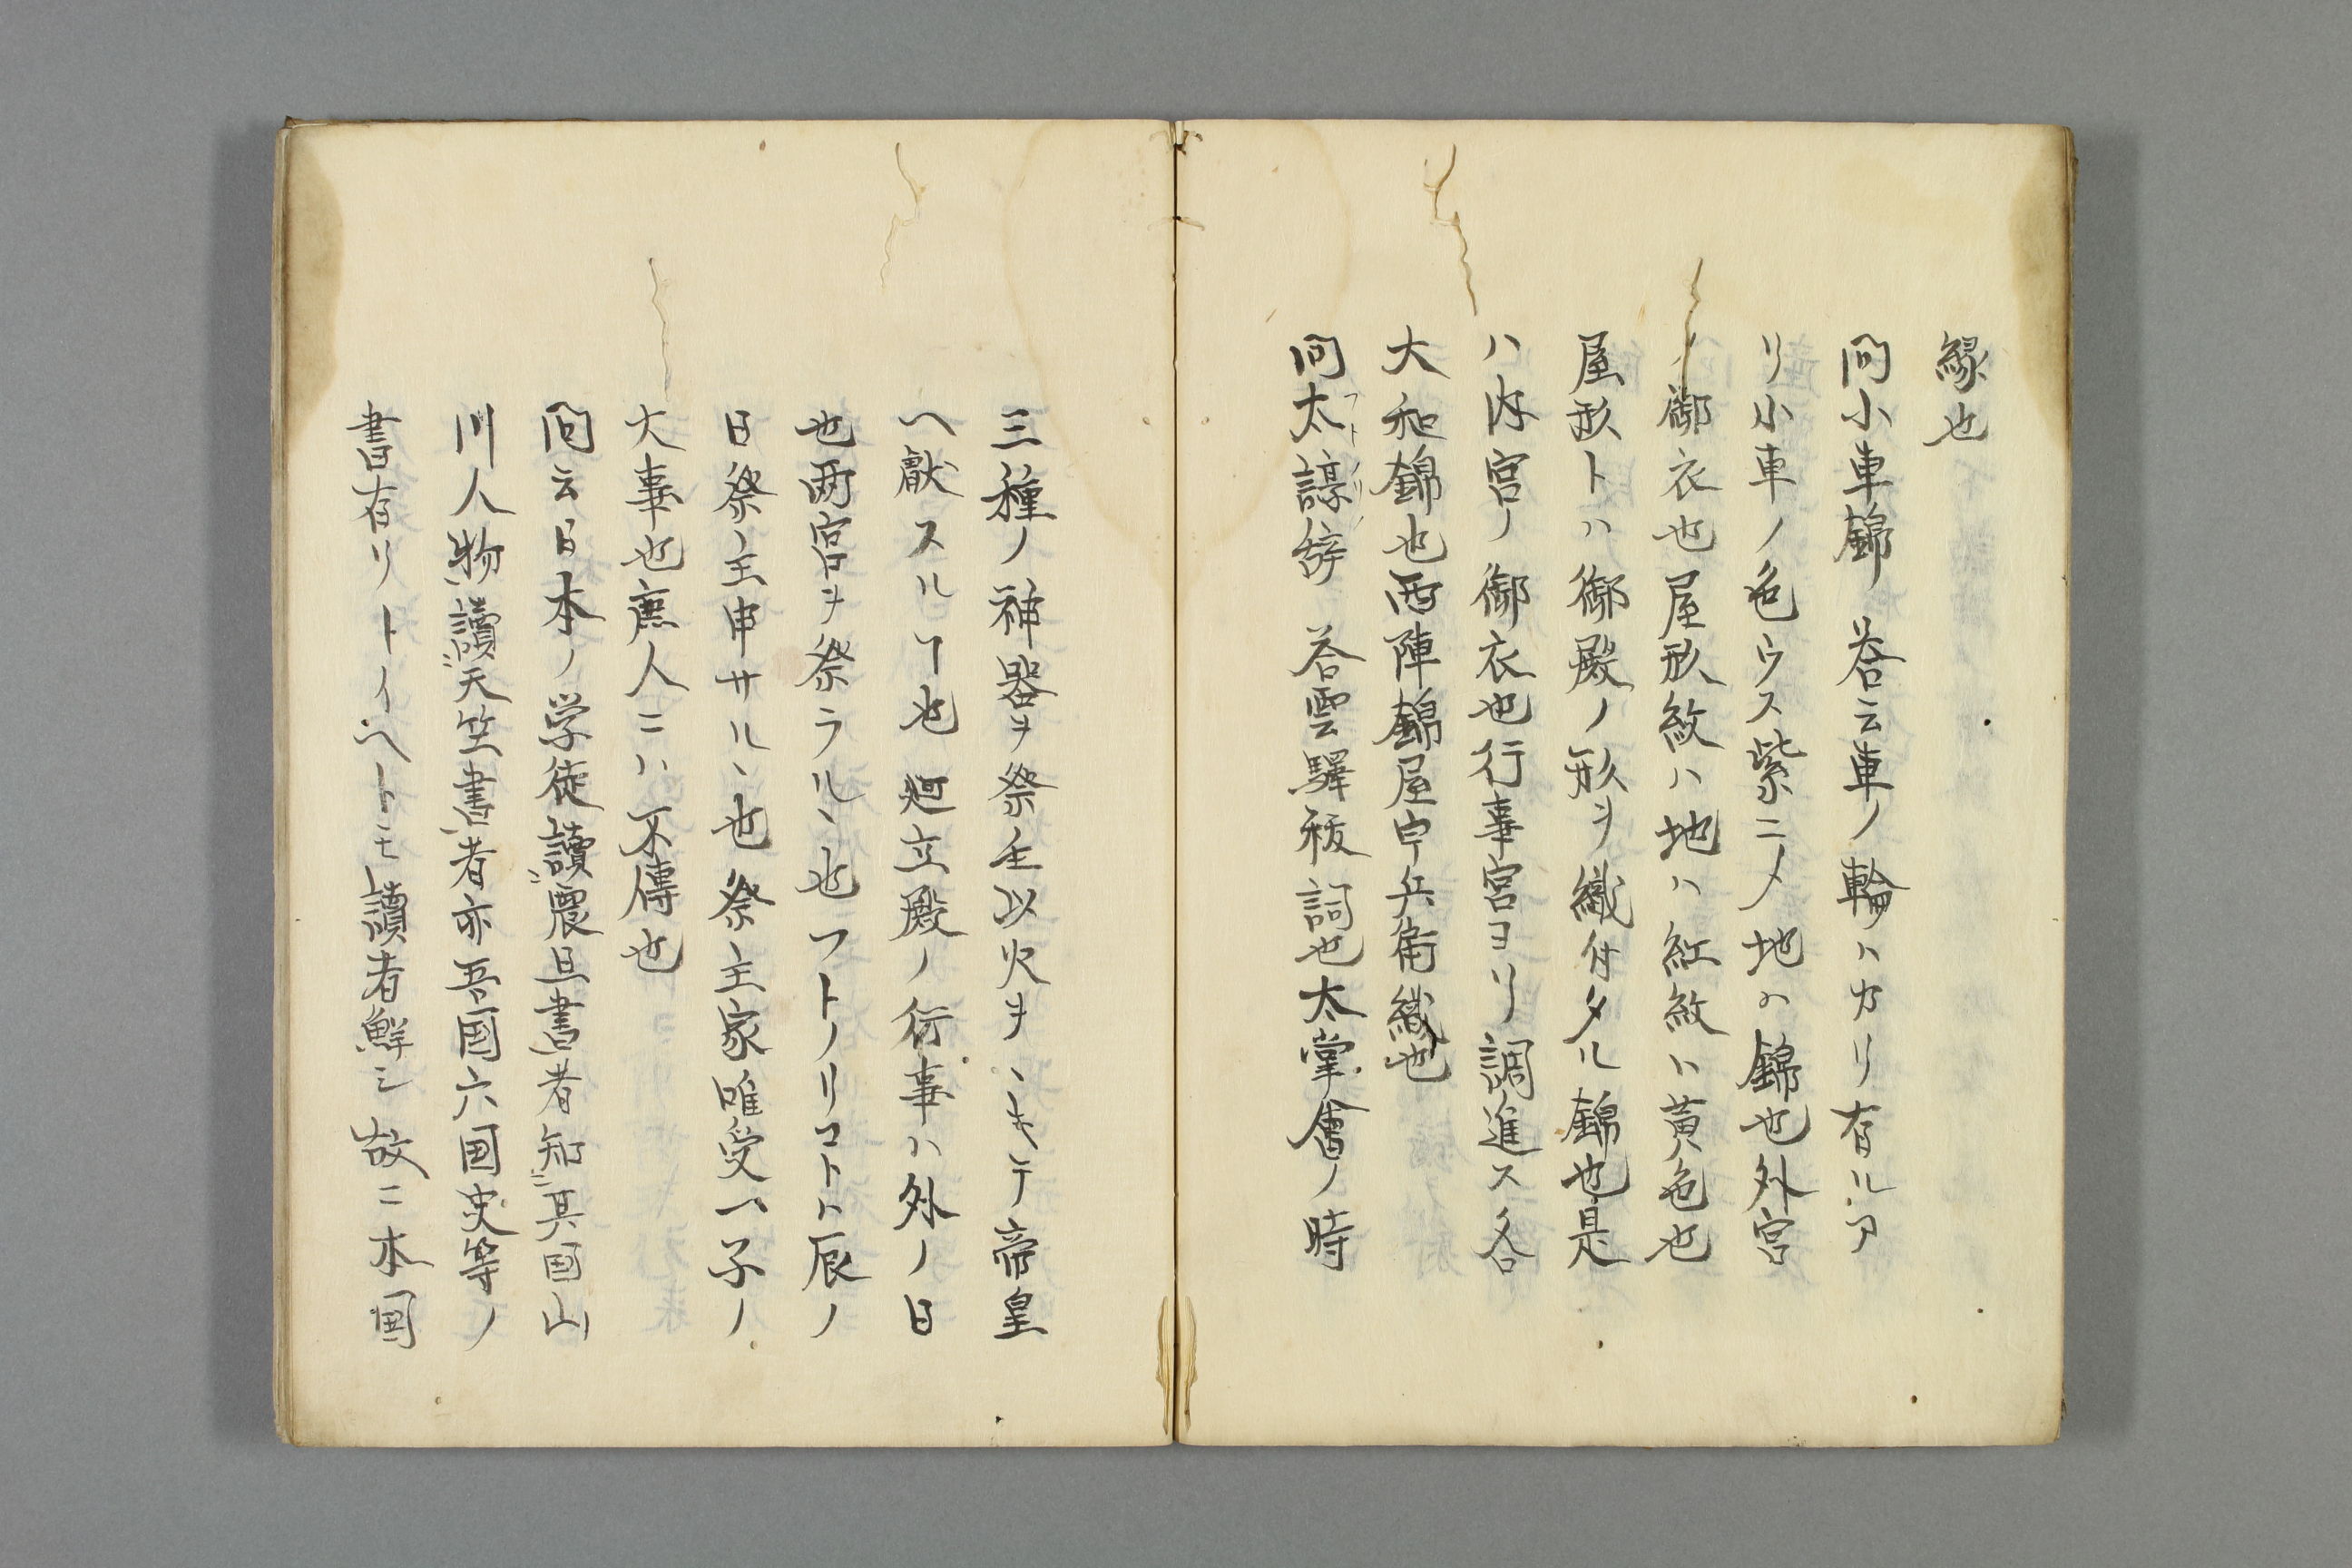 縁也
問小車錦 荅云車ノ輪ハカリ有ルア
リ小車ノ色ウス紫ニメ地ハ錦也外宮
ノ御衣也屋形紋ハ地ハ紅紋ハ黄色也
屋形トハ御殿ノ形ヲ織付タル錦也是
ハ内宮ノ御衣也行事宮ヨリ調進ス各
大和錦也西陣錦屋甲兵衛織也
問太諄辞 荅雲驛祓詞也太掌會ノ時
フトノリノ
三種ノ神器ヲ祭主以火ヲ テ帝皇
ヘ献スルヿ也 立殿ノ行事ハ外ノ日
也両宮ヲ祭ラルヽ也フトノリコトハ辰ノ
日祭ノ主申サルヽ也祭ノ主家確受一子ノ
大事也庶人ニハ不傳也
問云日本ノ学徒讀震旦書者知其国山
川人物讀天竺書者亦吾国六国史等ノ
書有リトイヘトモ讀者鮮シ故ニ本国